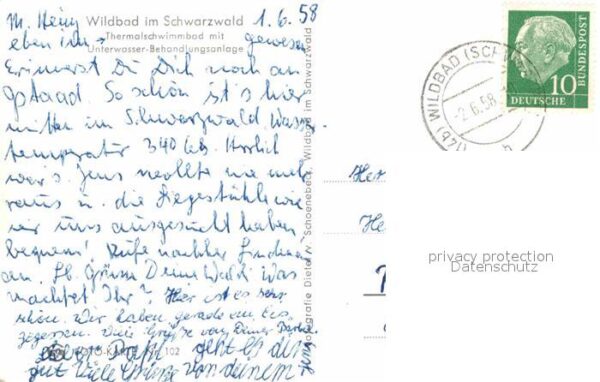 Wildbad im Schwarzwald
Thermalschwimmbad mit
Unterwasser-Behandlungsanlage
M. Heinz 1.6.58
eben im gewesen
Erinnerst Du Dich noch an
Gstaad. So schön ist's hier
mitten im Schwarzwald Wasser-
temperatur 34° Herrlich
war's. Jens wollte nie mehr
raus u. die Liegestühle wie
wir uns ausgesucht haben
bequem! Rufe nachher
an. Gruss Deine Waldi was
machtet Ihr? Hier ist es sehr
schön. Wir haben gerade ein Eis
gegessen. Viele Grüße von Deiner
Lieber Papi geht es dir
gut viele Grüße von deinem
Jens
102
Fotografie Dieter W. Schoenebeck, Wildbad im Schwarzwald
WILDBAD (SCHW
-2.6.58
10
DEUTSCHE
BUNDESPOST
Her
He
privacy protection
Datenschutz